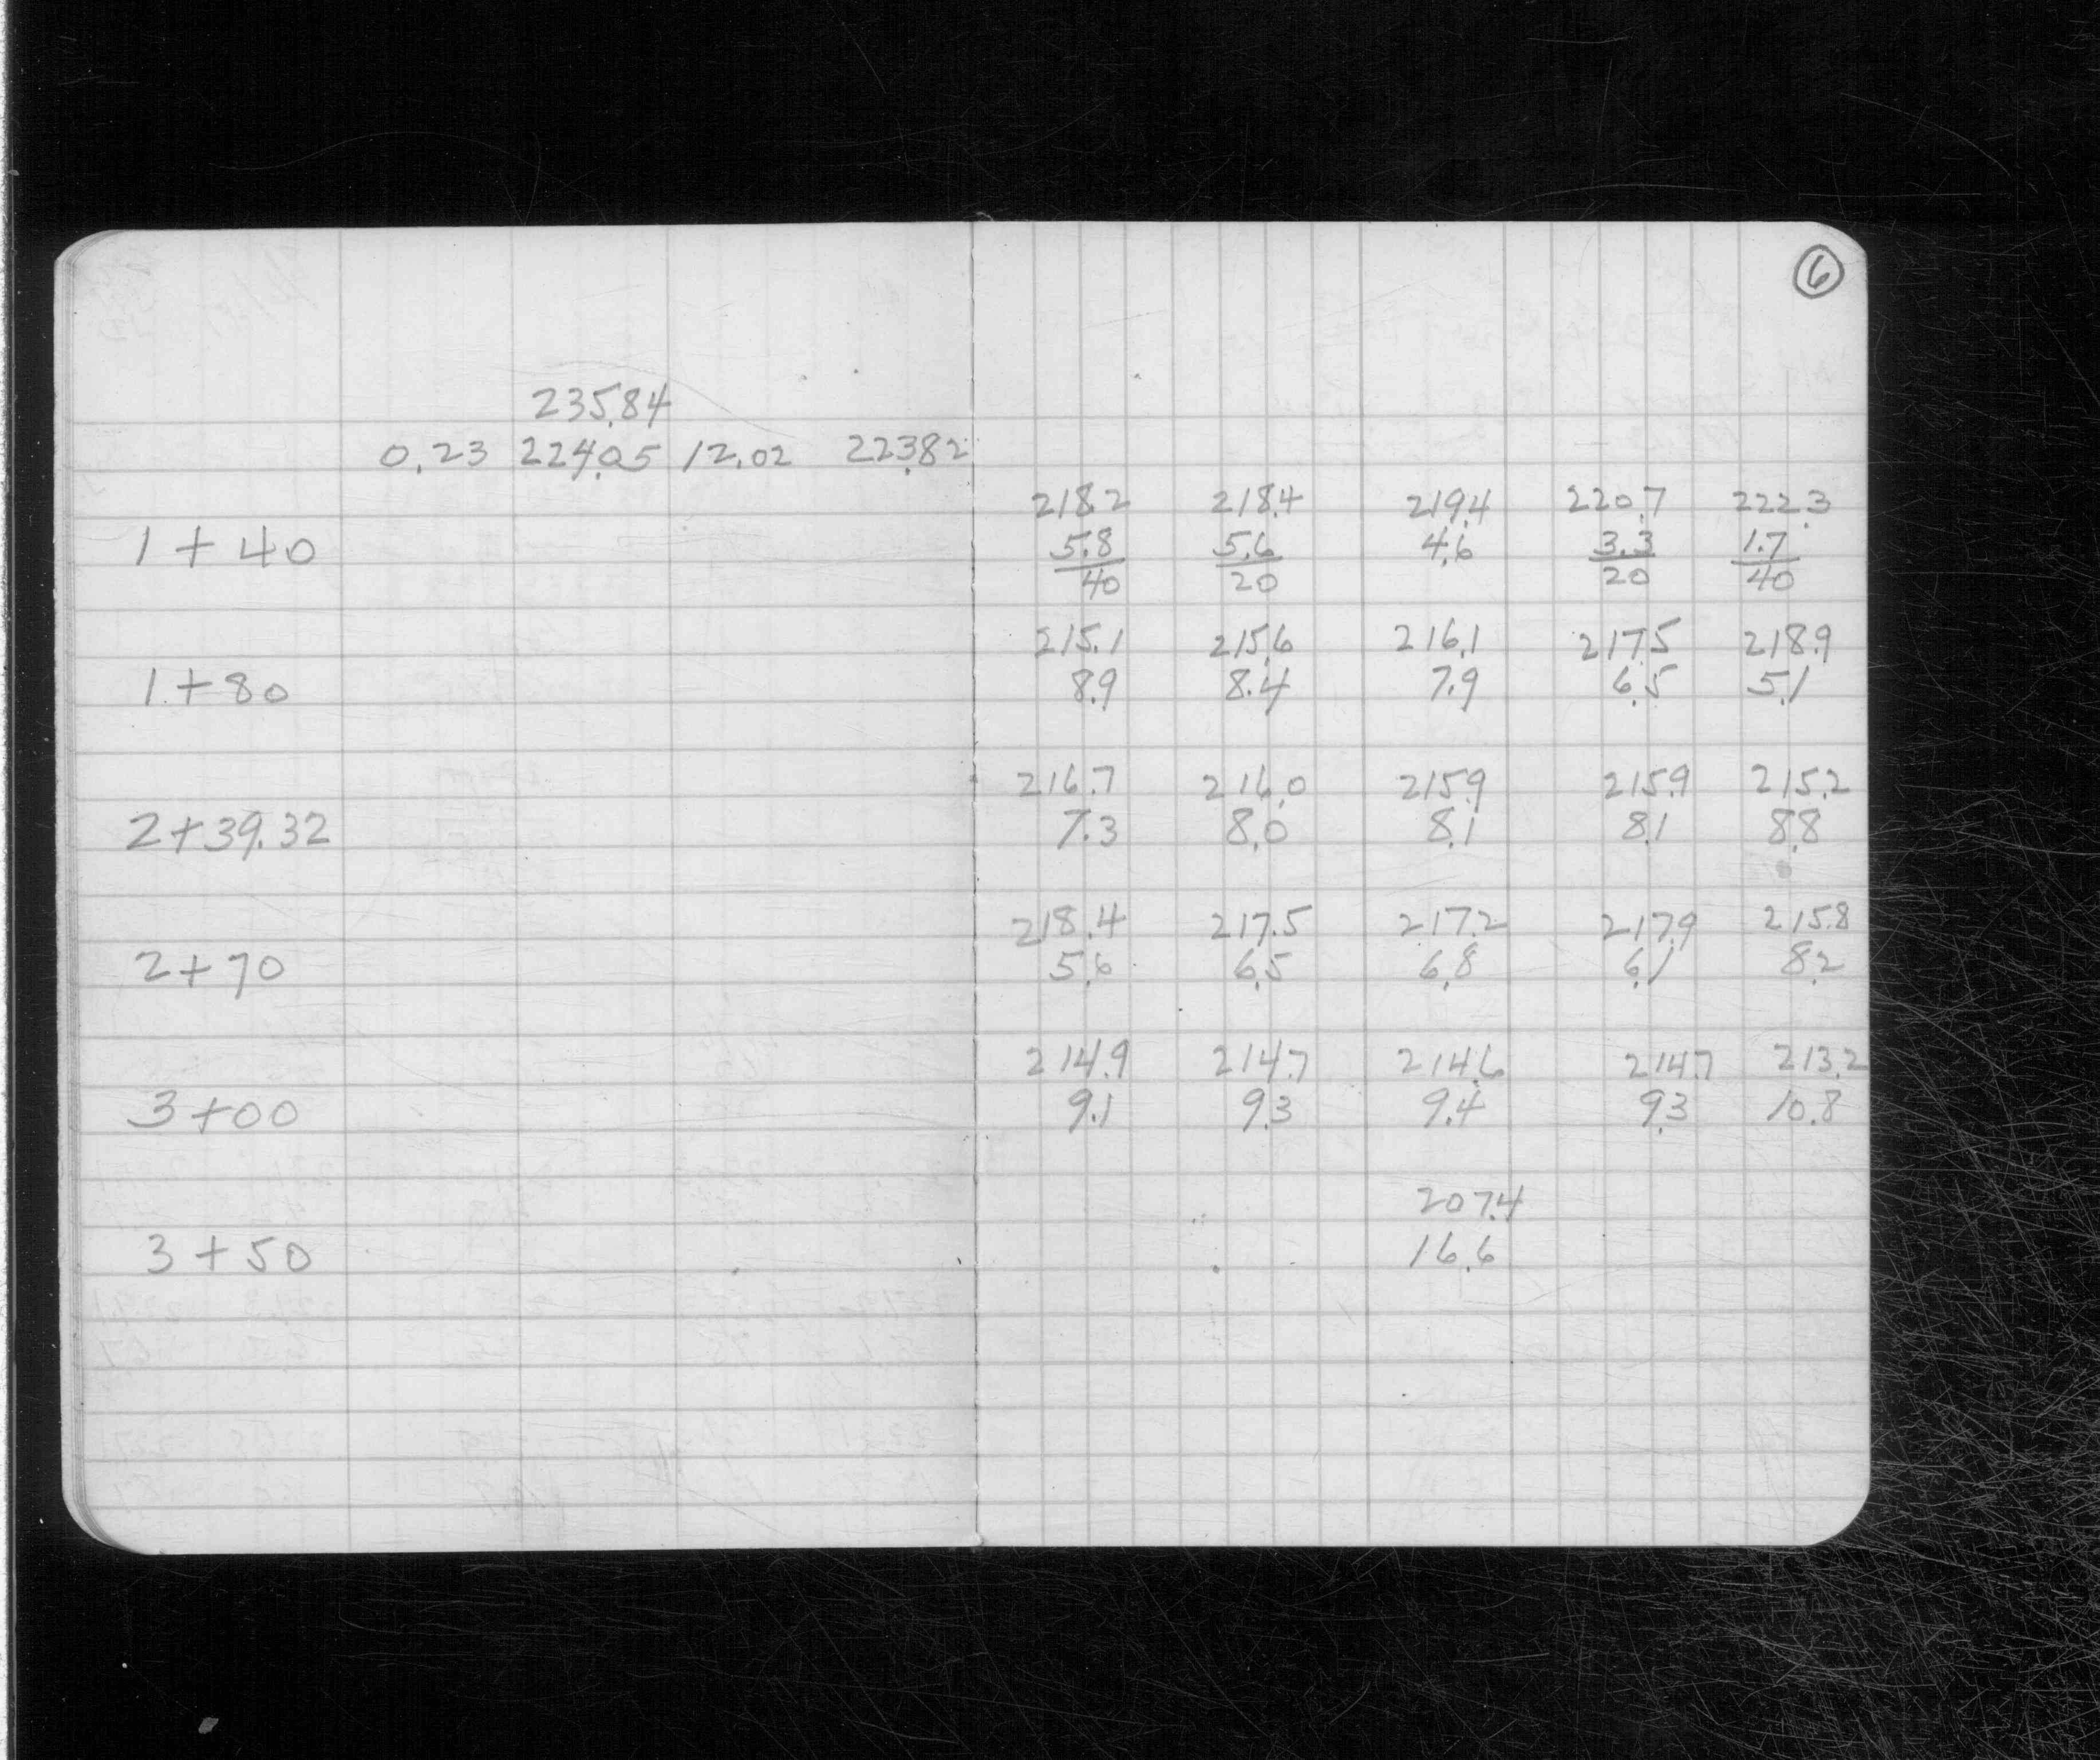 6
235.84
0.23 224.05 12.02 223.82
218.2 218.4 219.4 220.7 222.3
1+40 5.8 5.6 4.6 3.3 1.7
40 20 20 40
215.1 215.6 216.1 217.5 218.9
1+80 8.9 8.4 7.9 6.5 5.1
216.7 216.0 215.9 215.9 215.2
2+39.32 7.3 8.0 8.1 8.1 8.8
218.4 217.5 217.2 217.9 215.8
2+70 5.6 6.5 6.8 6.1 8.2
214.9 214.7 214.6 214.7 213.2
3+00 9.1 9.3 9.4 9.3 10.8
207.4
3+50 16.6